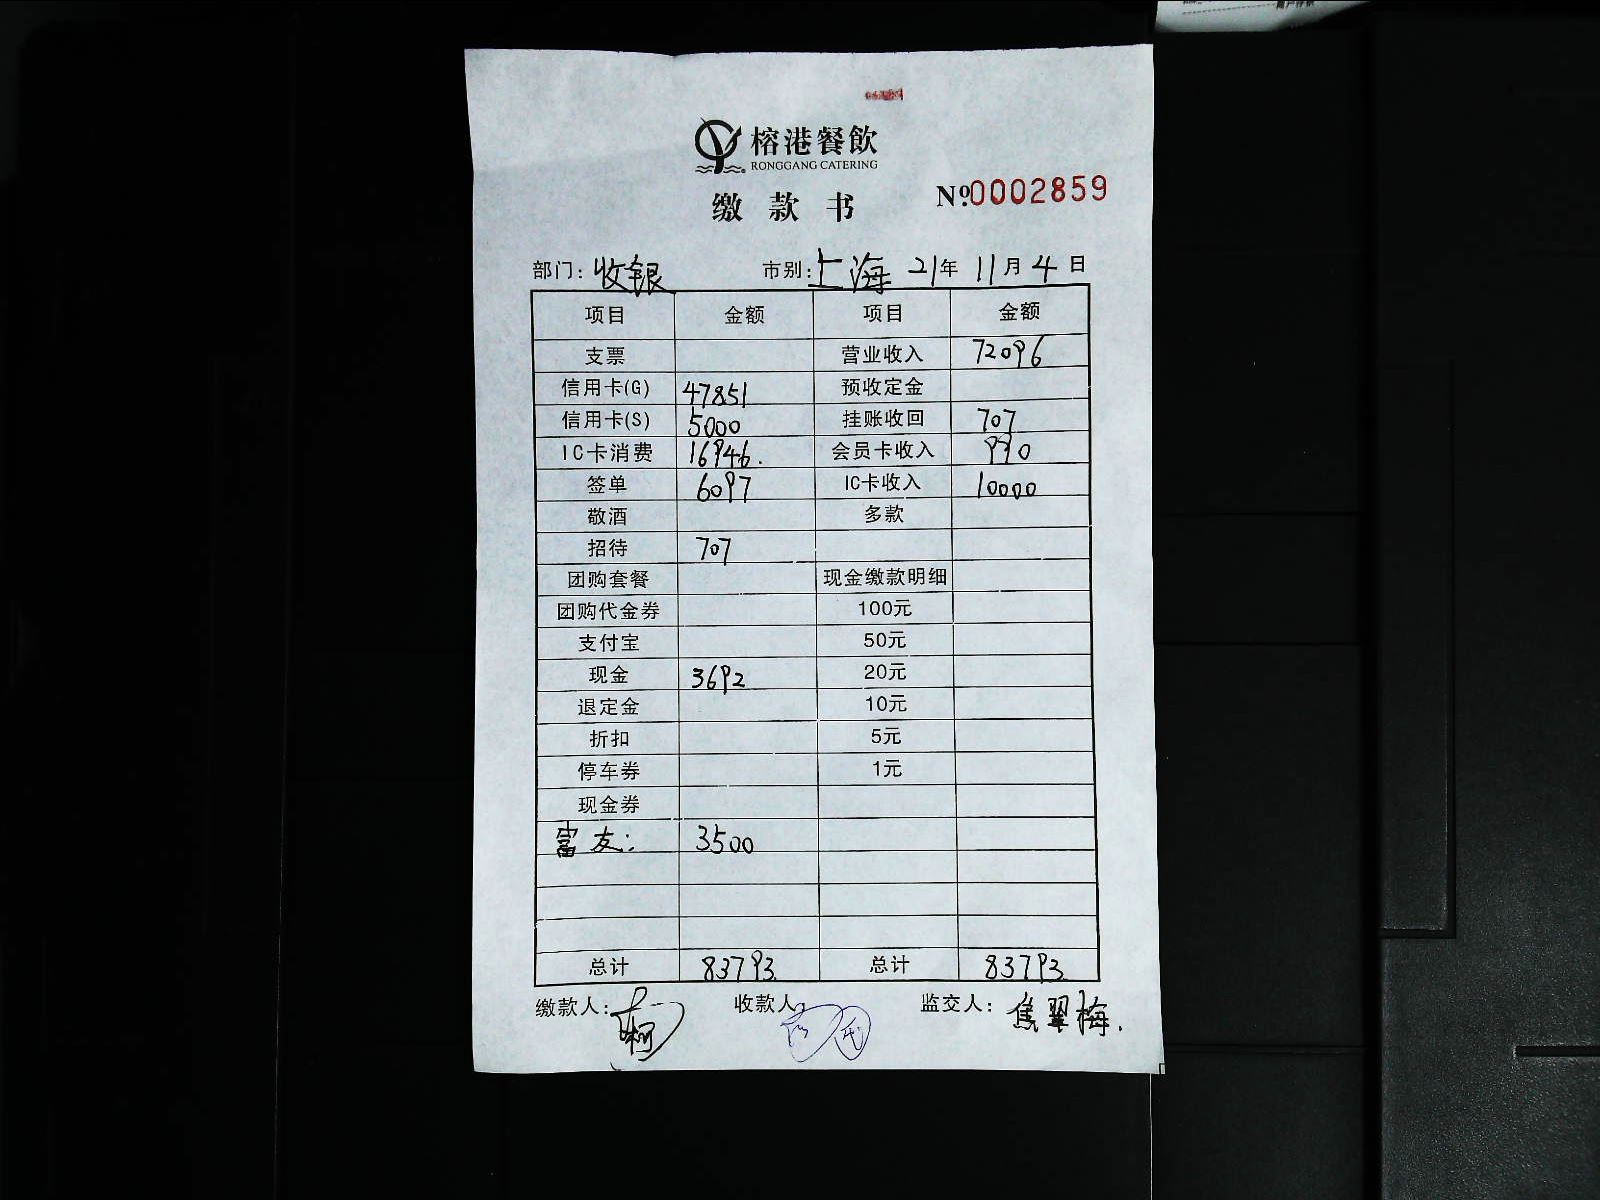 榕港餐飲
RONGGANG CATERING
缴款书
№:0002859
部门: 收银 市别: 上海 21年 11月 4日
项目 金额 项目 金额
支票 营业收入 72096
信用卡(G) 47851 预收定金
信用卡(S) 5000 挂账收回 707
IC卡消费 16946. 会员卡收入 990
签单 6097 IC卡收入 10000
敬酒 多款
招待 707
团购套餐 现金缴款明细
团购代金券 100元
支付宝 50元
现金 3692 20元
退定金 10元
折扣 5元
停车券 1元
现金券
富友: 3500
总计 83793 总计 83793
缴款人: 收款人: 监交人: 焦翠梅.